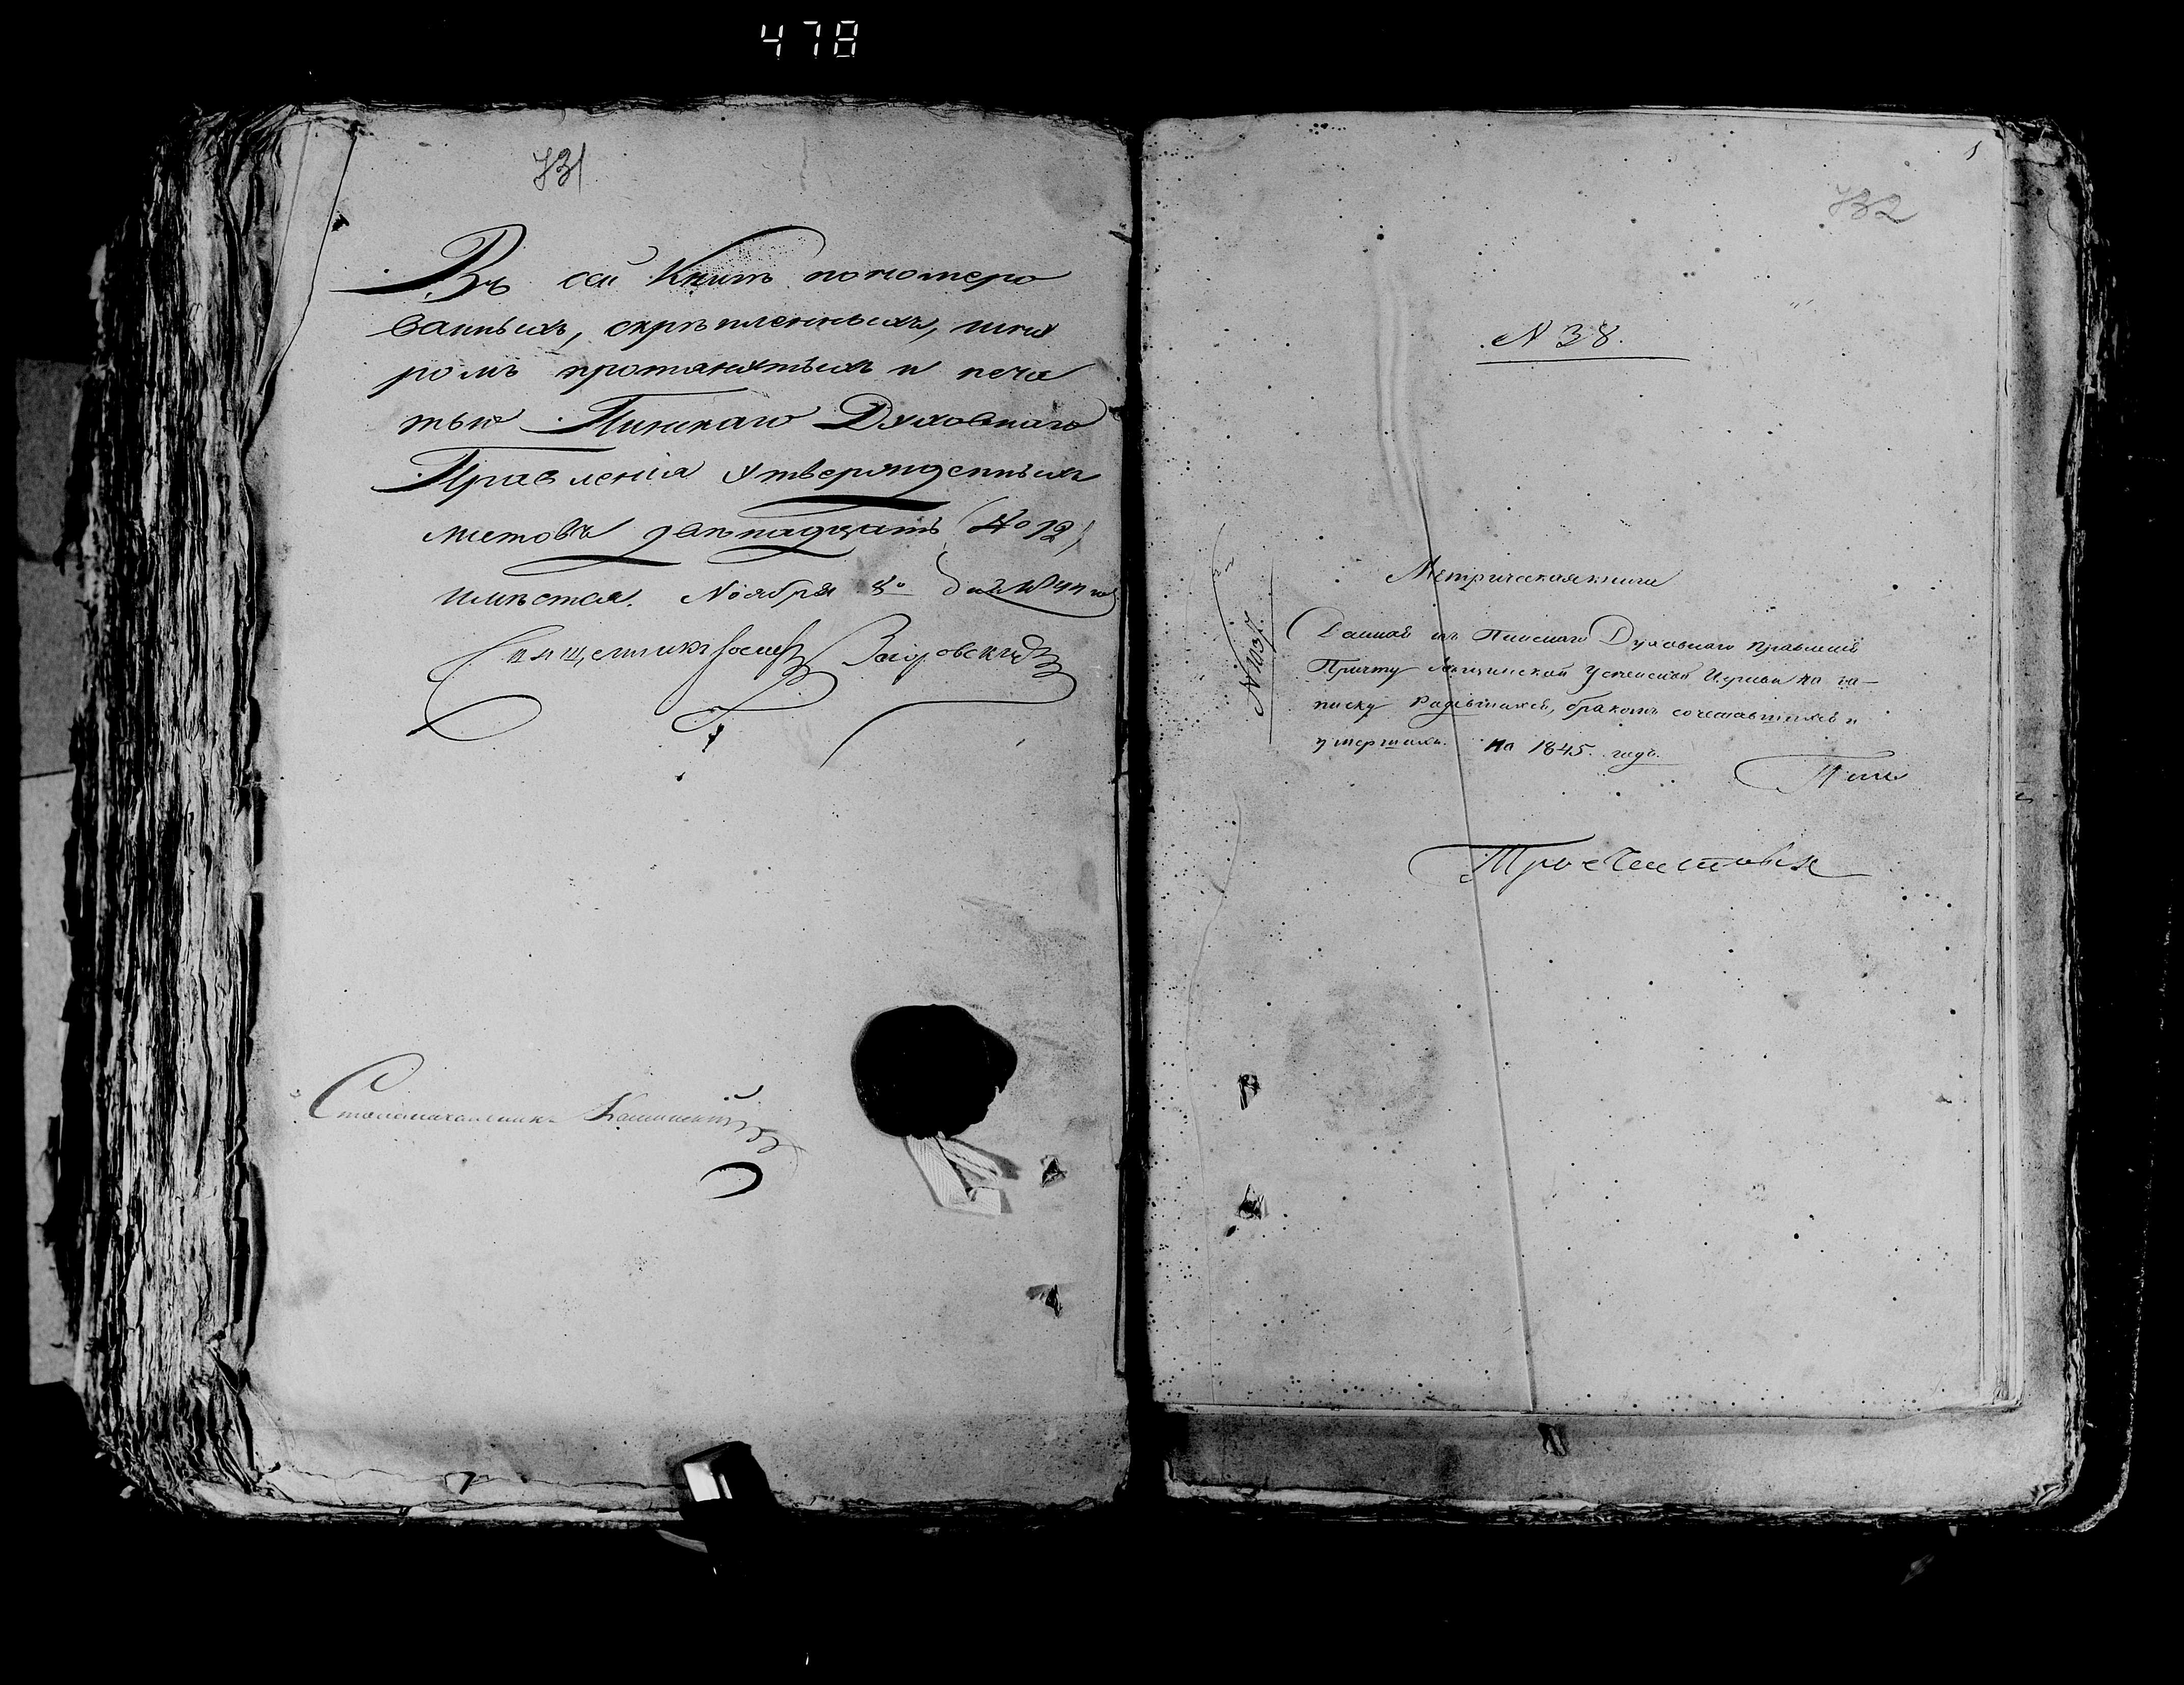 478
731
Въ сей Книгѣ пономеро
ванныхъ, скрѣпленныхъ, шну
ромъ протянутыхъ и печа
тью Пинскаго Духовнаго
Правленія утвержденныхъ
листовъ двѣнадцать (№ 12)
имѣется. Ноября 8º дня 1844 го
Священникъ Іосифъ
Столоначальникъ
1
732
N 38.
N 1037.
Метрическая книга
Данная изъ Пинскаго Духовнаго Правленія
Причту Успенской Церкви на за-
писку Родившихся, бракомъ сочетавшихся и
умершихъ. на 1845. годъ.